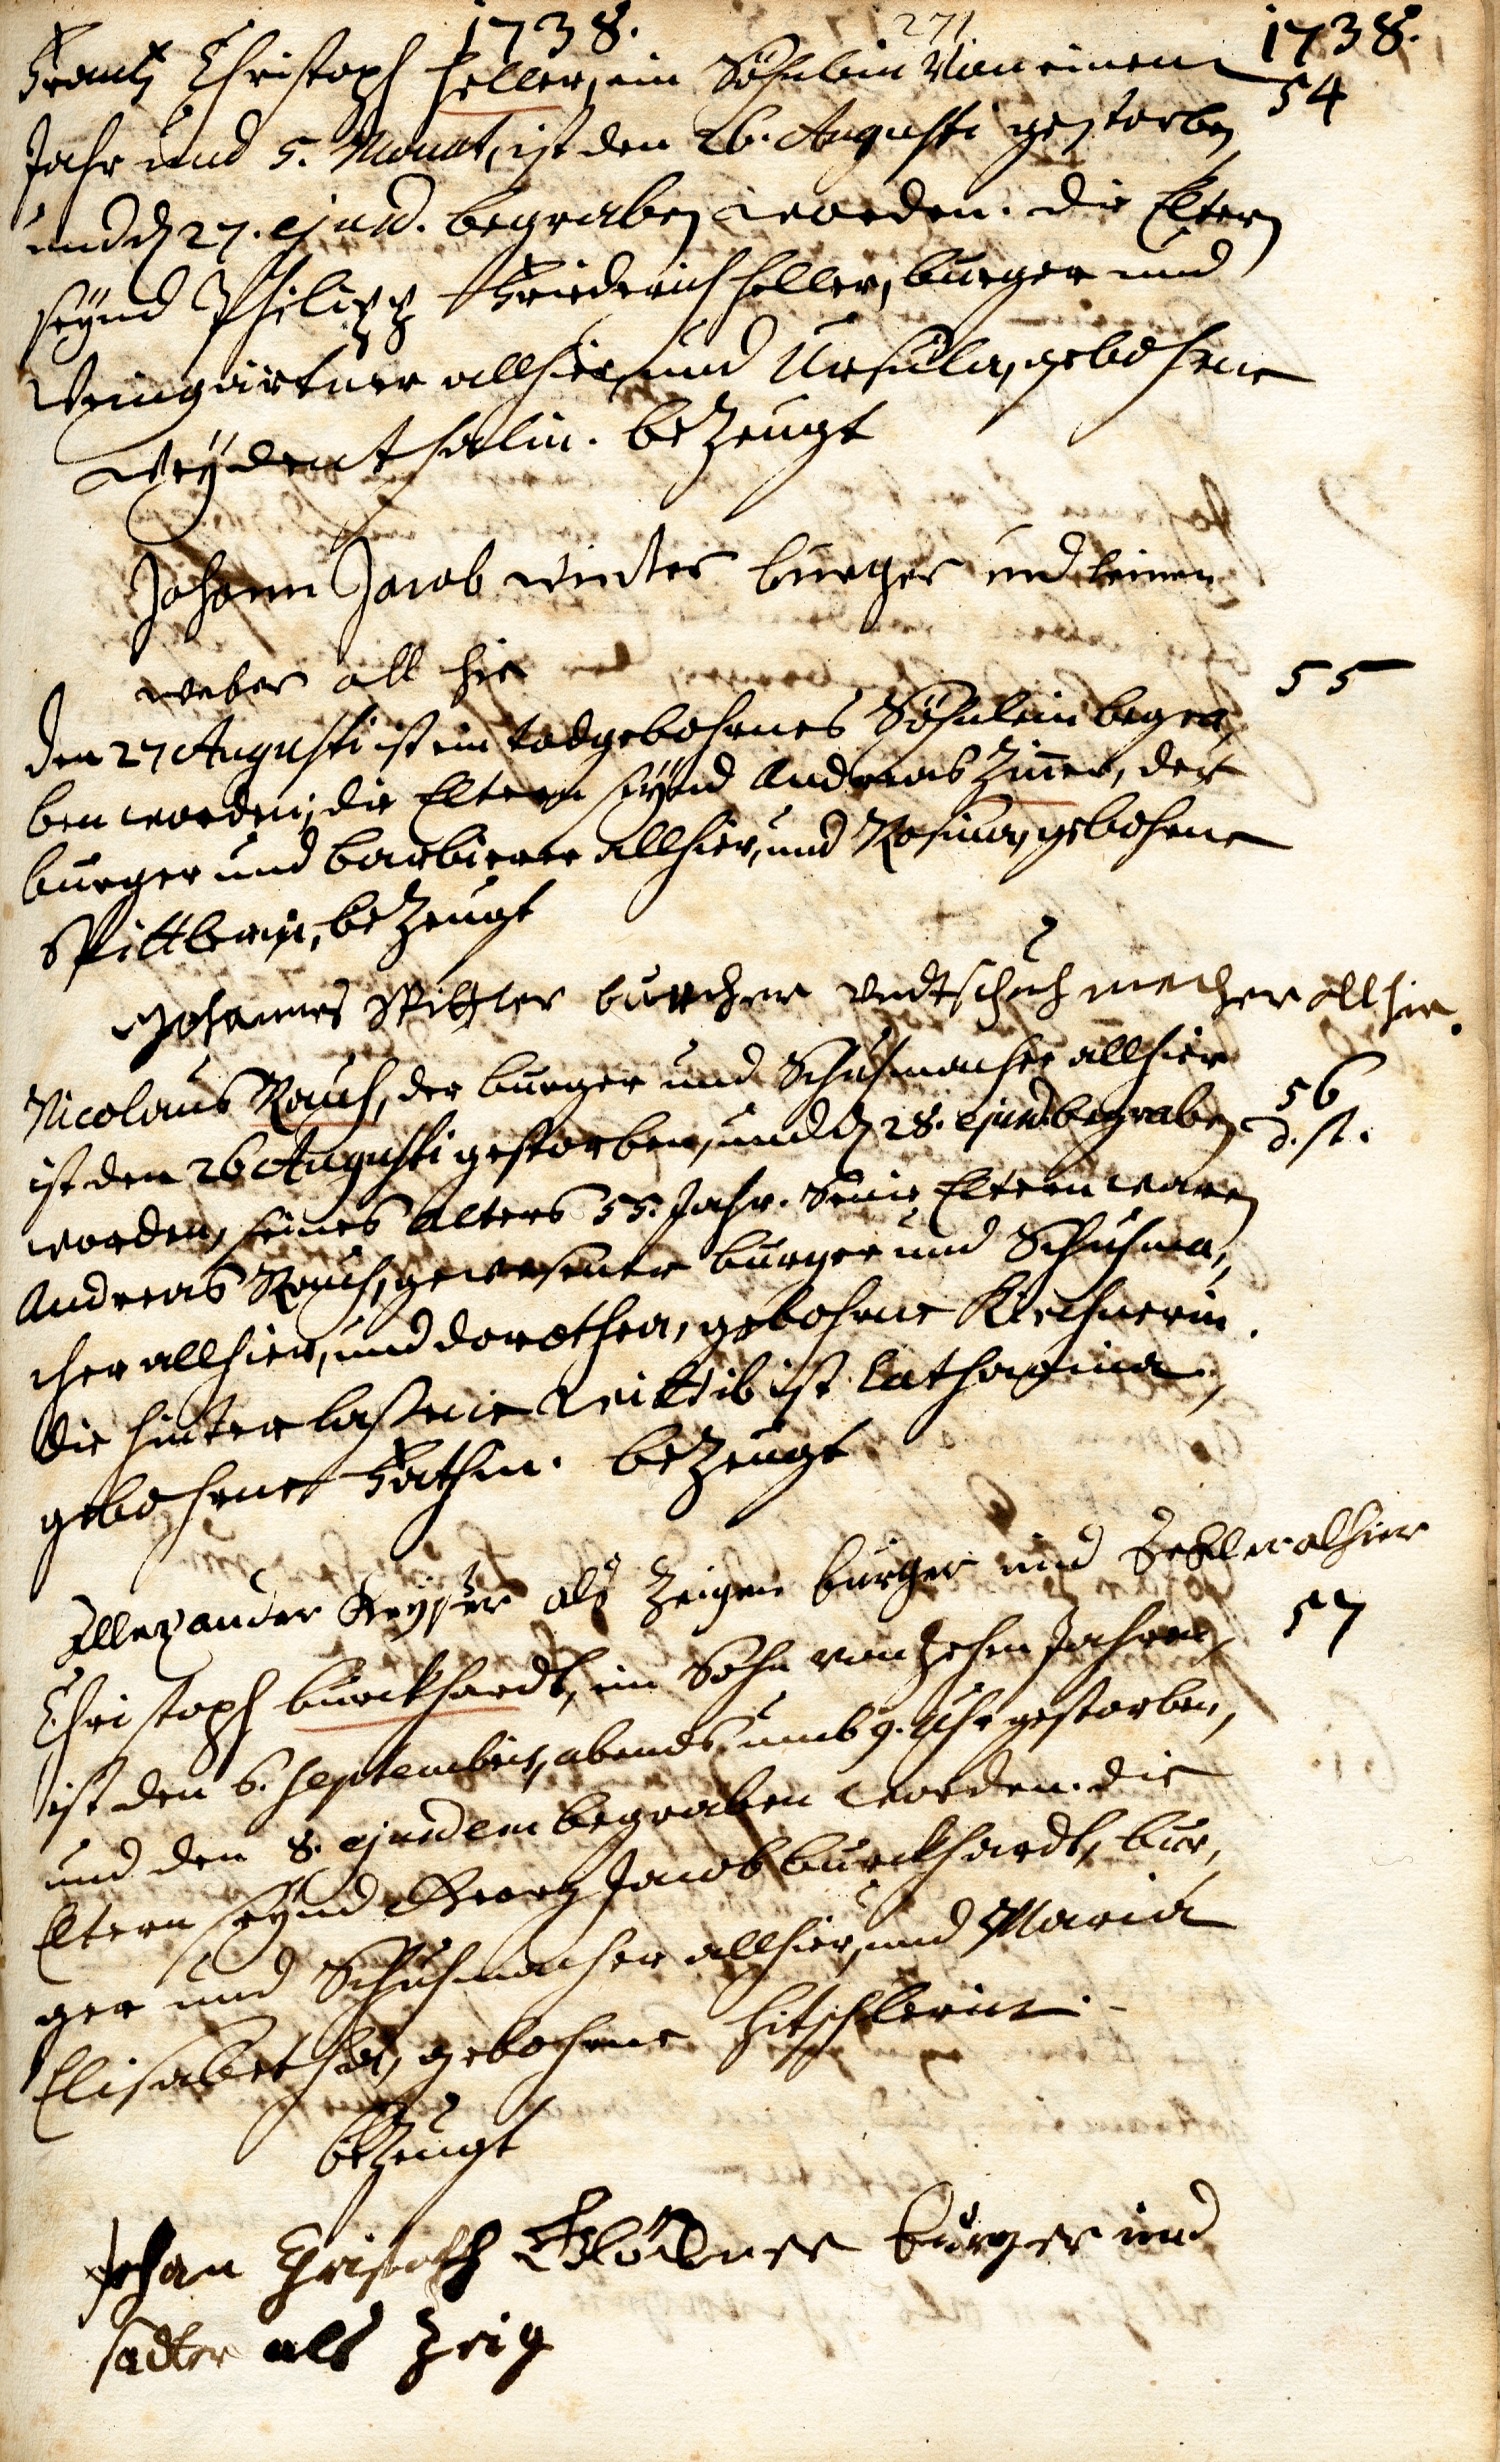 1738. 271 1738.
Frantz Christoph Heller, ein Söhnlein Von einem 54
Jahr und 5. Monat, ist den 26. Augusti gestorben
und d 27. ejusd. begraben worden. die Eltern
seynd Philipp Friederich Heller, burger und
Weingärtner allhier, und Ursula, gebohrne
Weydenthalin. bezeugt
Johann Jacob winter burger und leinen
weber all hie
55
den 27 Augusti ist ein todgebohrnes Söhnlein begra,
ben worden; die Eltern seynd Andreas Zinner, der
burger und barbierer allhier, und Rosina, gebohrne
Spittlerin, bezeugt
Johannes Spittler burcher undt schuch mecher all hie.
Nicolaus Rauch, der burger und Schuhmacher allhier 56
ist den 26 Augusti gestorben, und d 28. ejusd. begraben d. st.
worden, seines Alters 55. Jahr. Seine Eltern waren
Andreas Rauch, gewesener burger und Schuhma,
cher allhier, und dorothea, gebohrne Kirchnerin.
die hinterlaßene Wittib ist Catharina,
gebohrne Fathin. bezeugt
Allexander Keyser als Zeigen burger und Seckler alhier
57
Christoph burckhardt, ein Sohn von zehen Jahren,
ist den 6. Septembris, abends umb 9. Uhr gestorben,
und den 8. ejusdem begraben worden. die
Eltern seynd Georg Jacob burckhardt, bur,
ger und Schuhmacher allhier, und Maria
Elisabetha, gebohrne Hitschlerin.
bezeugt
Johan Christoph burger und
sadler als Zeig